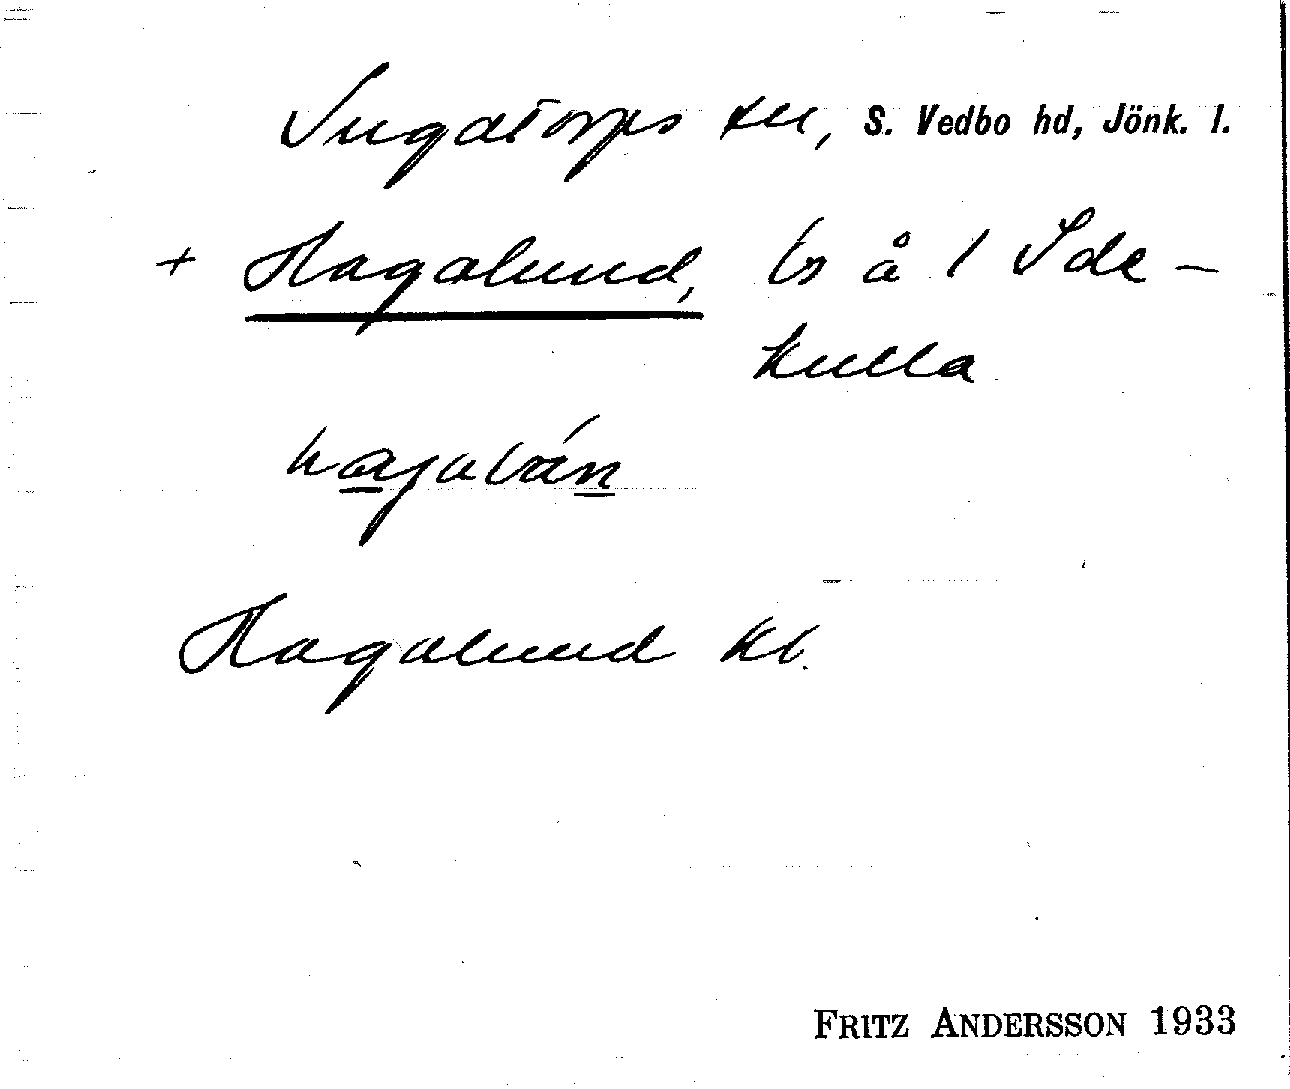 Ingatorps sn, S. Vedbo hd, Jönk. l.
+ Hagalund, bs å 1 Ide-
kulla
Hagalund kb.
FRITZ ANDERSSON 1933